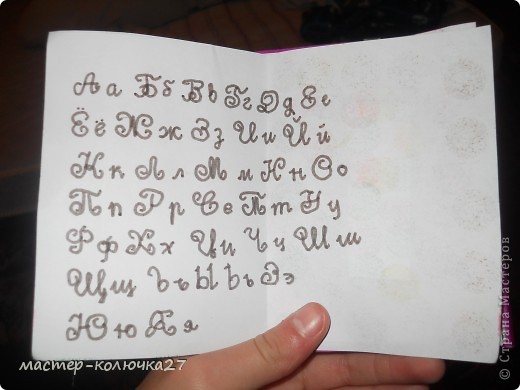 Аа Бб Вв Гг Дд Ее
Ёё Жж Зз Ии Йй
Кк Лл Мм Нн Оо
Пп Рр Сс Тт Уу
Фф Хх Цц Чч Шш
Щщ Ъъ Ы Ьь Ээ
Юю Яя
мастер-колючка27
© Страна Мастеров